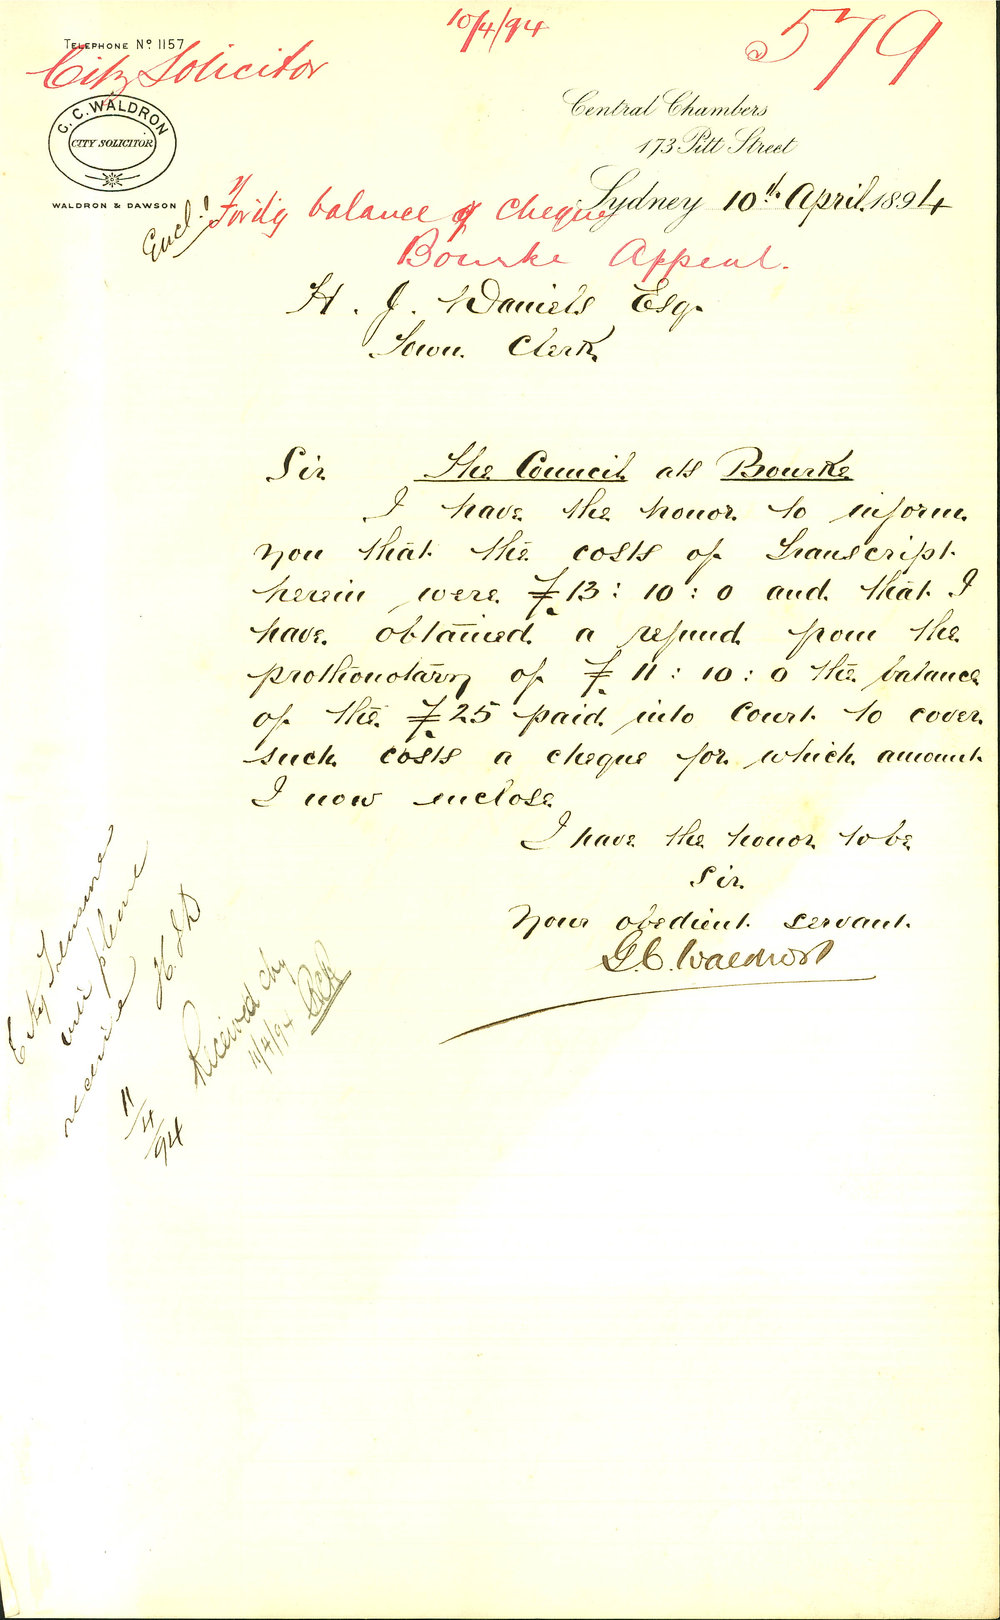 10/4/94
579
TELEPHONE No 1157
City Solicitor
G. C. WALDRON
CITY SOLICITOR
WALDRON & DAWSON
Central Chambers
173 Pitt Street
Sydney 10th April 1894
Encl.
Fordg balance of cheque
Bourke Appeal.
H. J. Daniels Esq.
Town Clerk
Sir The Council ats Bourke
I have the honor to inform
you that the costs of transcript
herein were £13:10:0 and that I
have obtained a refund from the
prothonotary of £11:10:0 the balance
of the £25 paid into Court to cover
such costs a cheque for which amount
I now enclose
I have the honor to be
Sir
Your obedient servant
G.C. Waldron
City Treasurer
will please
receive
H.J.D
11/4/94
Received chq
11/4/94